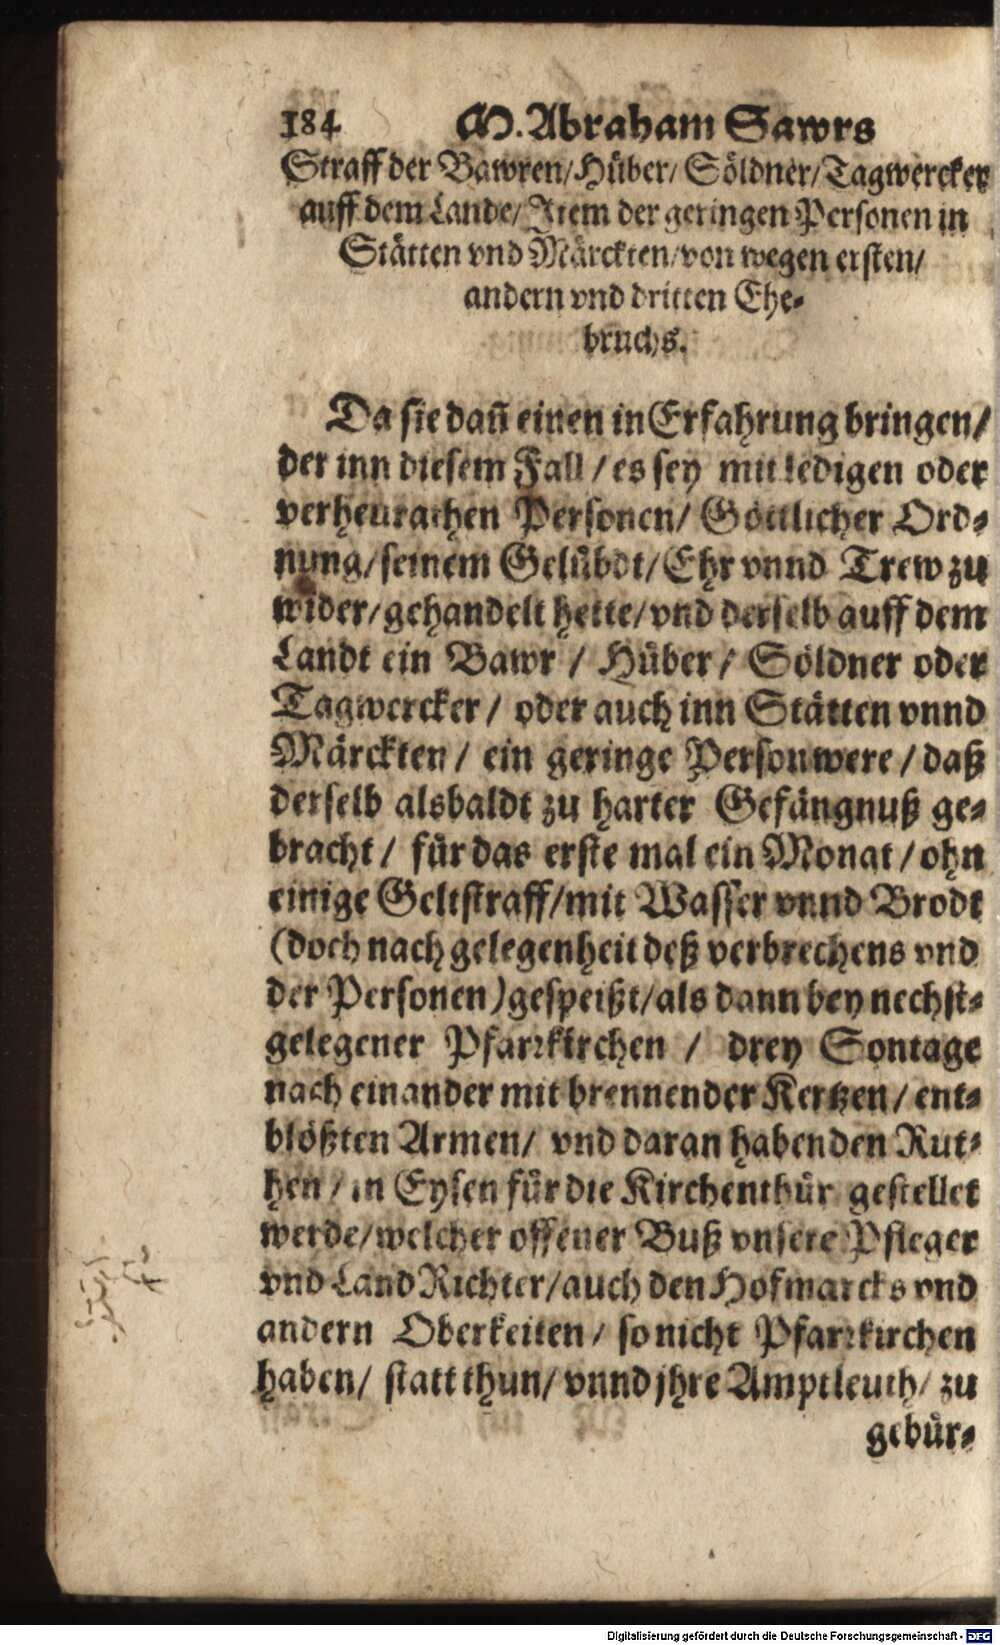 184 M. Abraham Sawrs
Straff der Bawren/Hüber/Söldner/Tagwercker
auff dem Lande/Item der geringen Personen in
Stätten vnd Märckten/von wegen ersten/
andern vnd dritten Ehe-
bruchs.
Da sie dañ einen in Erfahrung bringen/
der inn diesem Fall/es sey mit ledigen oder
verheurathen Personen/Göttlicher Ord-
nung/seinem Gelübdt/Ehr vnnd Trew zu
wider/gehandelt hette/vnd derselb auff dem
Landt ein Bawr/Hüber/Söldner oder
Tagwercker/oder auch inn Stätten vnnd
Märckten/ein geringe Person were/daß
derselb alsbaldt zu harter Gefängnuß ge-
bracht/für das erste mal ein Monat/ohn
einige Geltstraff/mit Wasser vnnd Brodt
(doch nach gelegenheit deß verbrechens vnd
der Personen)gespeißt/als dann bey nechst-
gelegener Pfarrkirchen/drey Sontage
nach einander mit brennender Kertzen/ent-
blößten Armen/vnd daran habenden Rut-
hen/in Eysen für die Kirchenthür gestellet
werde/welcher offener Buß vnsere Pfleger
vnd Land Richter/auch den Hofmarcks vnd
andern Oberkeiten/so nicht Pfarrkirchen
haben/statt thun/vnnd jhre Amptleuth/zu
gebür-
Digitalisierung gefördert durch die Deutsche Forschungsgemeinschaft - DFG